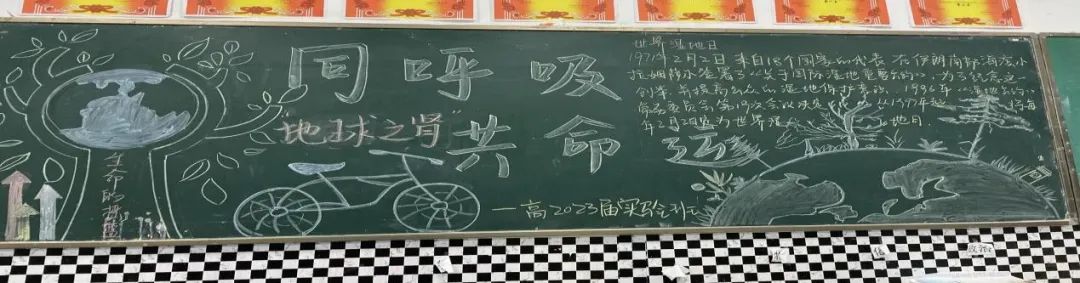 同呼吸
共命运
"地球之肾"
生命的
—高2023届实验2班
世界湿地日
1971年2月2日 来自18个国家的代表 在伊朗南部海滨小
签署了《关于国际湿地重要的》,为了纪念这
创举 并提高公众的湿地保护意识 1996年《湿地公约》
常务委员会第19次会议决定 从1997年起 将每
年2月2日定为世界湿地日